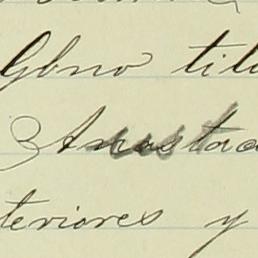 Gbno tit
Anasta
teriores y